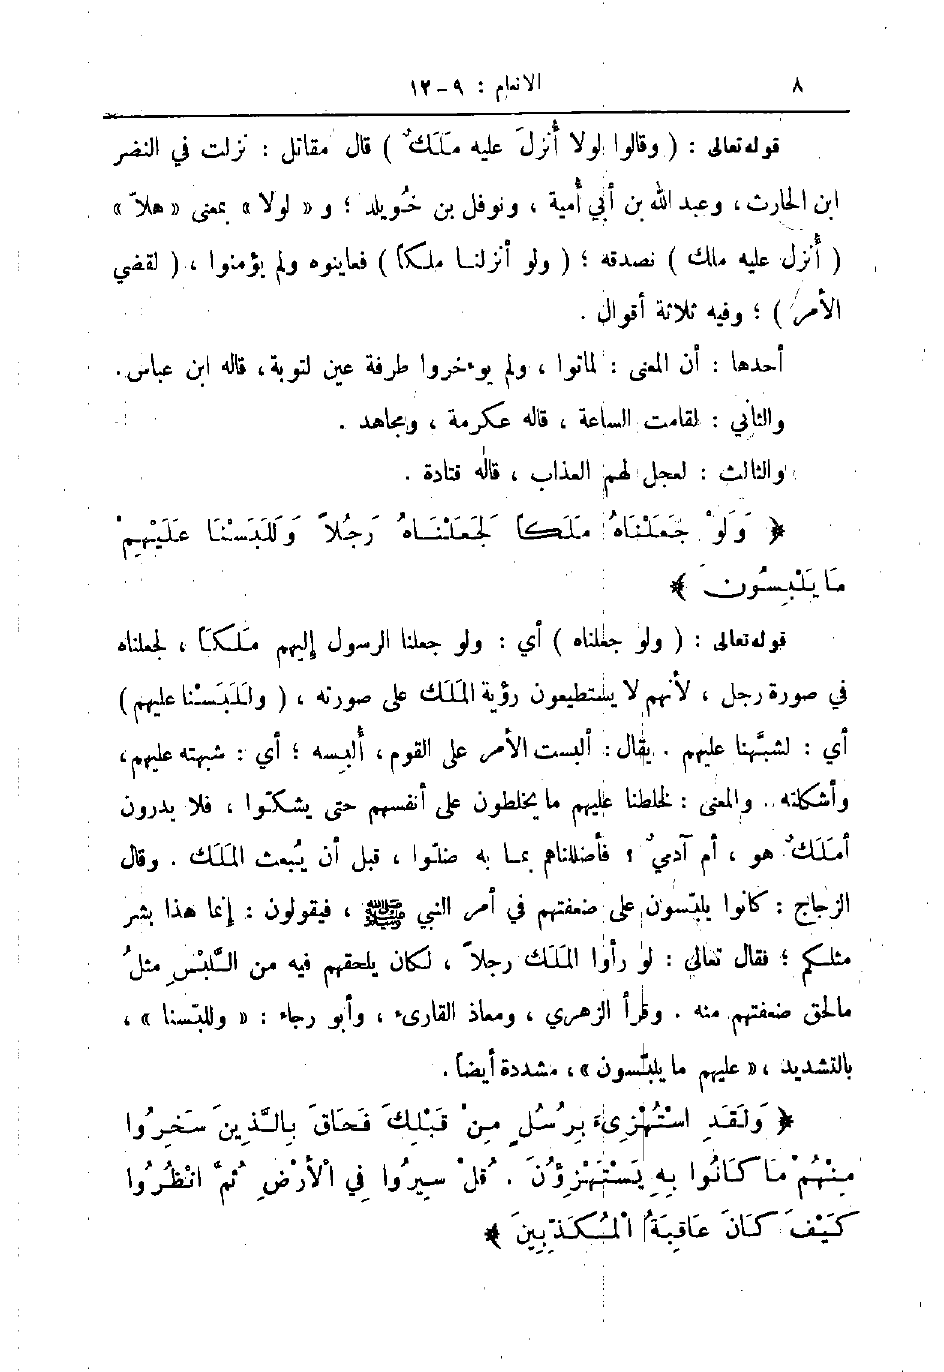 ٨ الانعام : ٩-١٢
قوله تعالى : ( وقالوا لولا أُنزلَ عليه مَلَكٌ ) قال مقاتل : نزلت في النضر
ابن الحارث ، وعبد الله بن أبي أُمية ، ونوفل بن خُويلد ؛ و « لولا » بمعنى « هلاّ »
( أُنزل عليه ملك ) نصدقه ؛ ( ولو أنزلنا ملكاً ) فعاينوه ولم يؤمنوا ، ( لقضي
الأمر ) ؛ وفيه ثلاثة أقوال .
أحدها : أن المعنى : لماتوا ، ولم يوءخروا طرفة عين لتوبة ، قاله ابن عباس .
والثاني : لقامت الساعة ، قاله عكرمة ، ومجاهد .
والثالث : لعجل لهم العذاب ، قاله قتادة .
﴿ وَلَوْ جَعَلْنَاهُ مَلَكاً لَجَعَلْنَاهُ رَجُلاً وَلَلَبَسْنَا عَلَيْهِمْ
مَا يَلْبِسُونَ ﴾
قوله تعالى : ( ولو جعلناه ) أي : ولو جعلنا الرسول إليهم مَلَكاً ، لجعلناه
في صورة رجل ، لأنهم لا يستطيعون رؤية المَلَك على صورته ، ( وللَبَسْنا عليهم )
أي : لشبَّهنا عليهم . يقال : ألبست الأمر على القوم ، أُلبِسه ؛ أي : شبهته عليهم ،
وأشكلته .. والمعنى : لخلطنا عليهم ما يخلطون على أنفسهم حتى يشكّوا ، فلا يدرون
أمَلَكٌ هو ، أم آدميٌ ؟ فأضللناهم بما به ضلّوا ، قبل أن يُبعث المَلَك . وقال
الزجاج : كانوا يلبّسون على ضعفتهم في أمر النبي ﷺ ، فيقولون : إنما هذا بشر
مثلكم ؛ فقال تعالى : لو رأوا المَلَك رجلاً ، لكان يلحقهم فيه من اللَّبْسِ مثلُ
مالحق ضعفتهم منه . وقرأ الزهري ، ومعاذ القارىء ، وأبو رجاء : « وللبّسنا » ،
بالتشديد ، « عليهم ما يلبّسون » ، مشددة أيضاً .
﴿ وَلَقَدِ اسْتُهْزِىءَ بِرُسُلٍ مِنْ قَبْلِكَ فَحَاقَ بِالَّذِينَ سَخِرُوا
مِنْهُمْ مَا كَانُوا بِهِ يَسْتَهْزِؤُنَ . قُلْ سِيرُوا فِي الْأَرْضِ ثُمَّ انْظُرُوا
كَيْفَ كَانَ عَاقِبَةُ الْمُكَذِّبِينَ ﴾